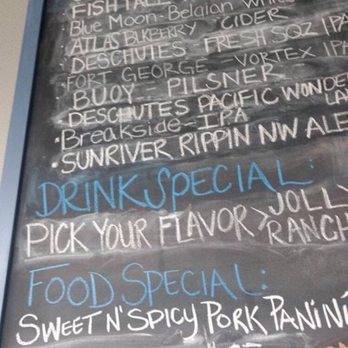 FISH TALE
Blue Moon-Belgian White
ATLAS BLKBERRY CIDER
DESCHUTES - FRESH SQZ IPA
FORT GEORGE - VORTEX IPA
BUOY - PILSNER
DESCHUTES PACIFIC WONDE
LA
Breakside-IPA
SUNRIVER RIPPIN NW ALE
DRINK SPECIAL:
PICK YOUR FLAVOR> JOLLY
RANCH
FOOD SPECIAL:
SWEET N' SPICY PORK PANINI